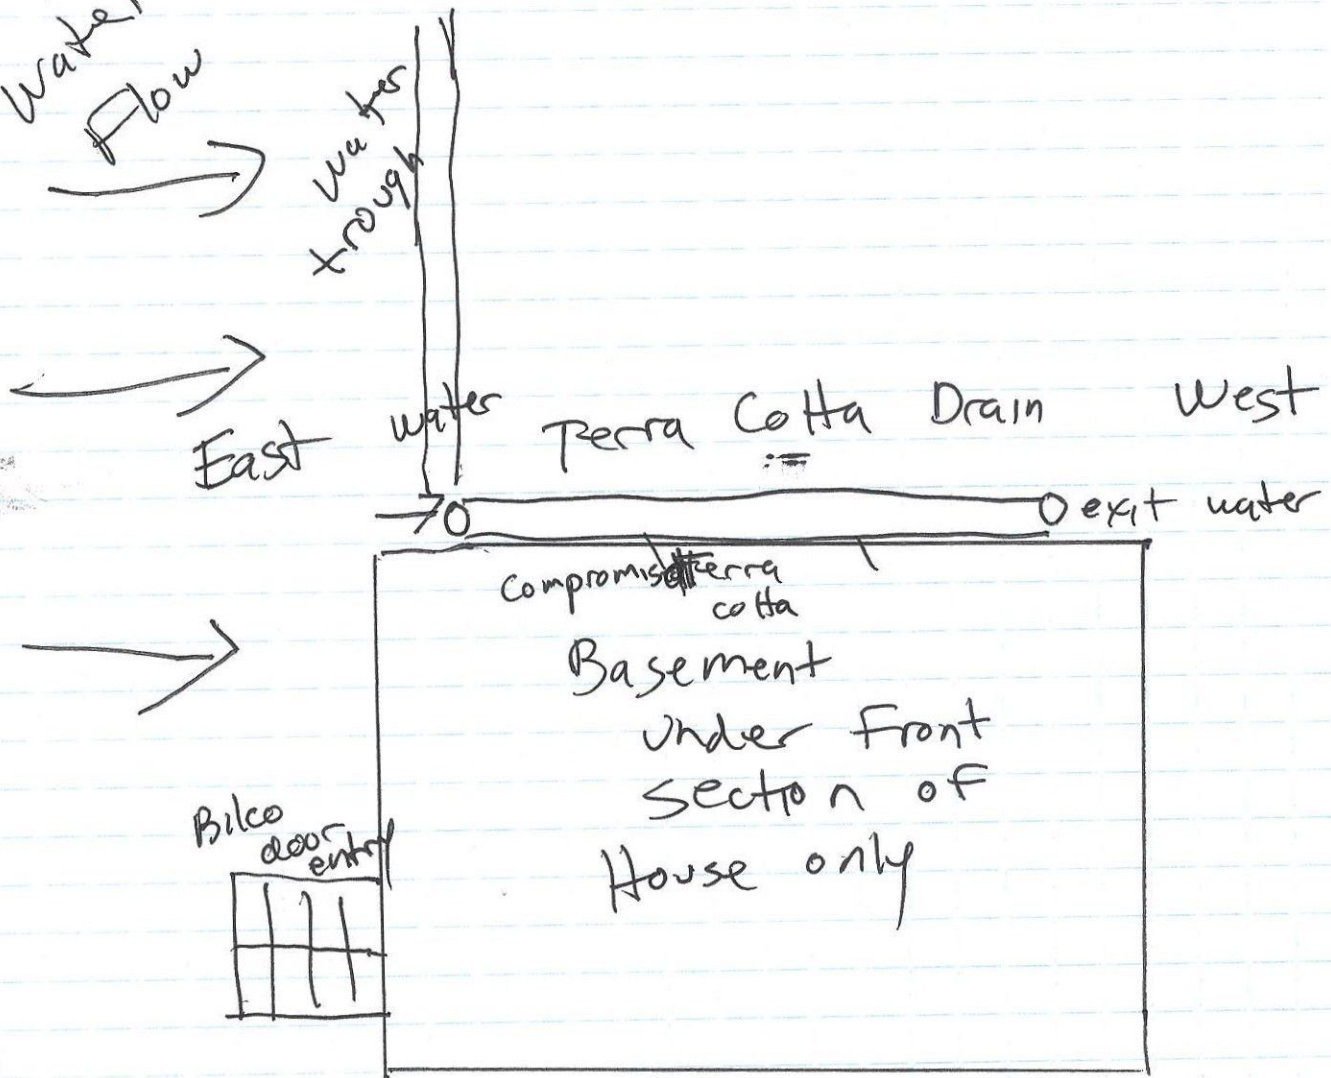 Water
Flow
Water
trough
East
water
Terra Cotta Drain
West
exit water
compromised terra
cotta
Basement
under Front
section of
House only
Bilco
door
entry